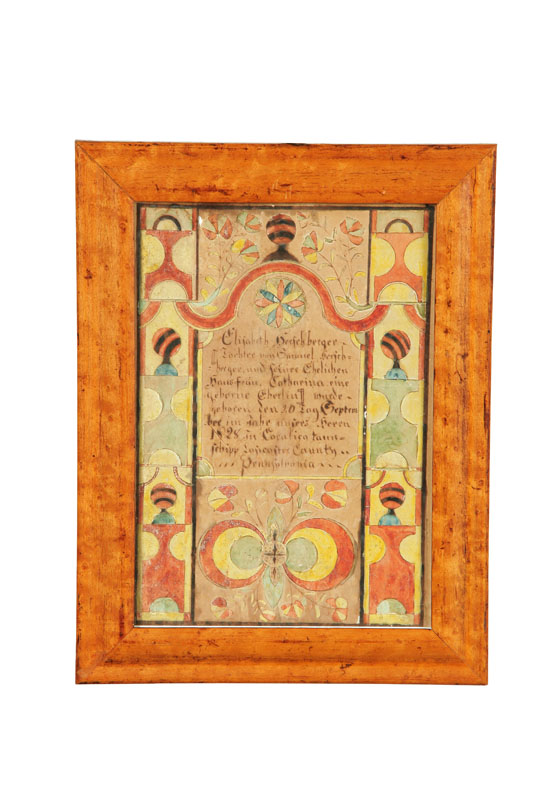 Elisabeth Herschberger
Tochter von Samuel Hersch-
berger, und seiner Ehelichen
Hausfrau, Catharina eine
geborne Eberlin wurde
geboren den 20 Tag Septem
ber im Jahr unsres Heren
1798, in Cocalica taun-
schipp Lancaster County ..
... Pennsilvania ...